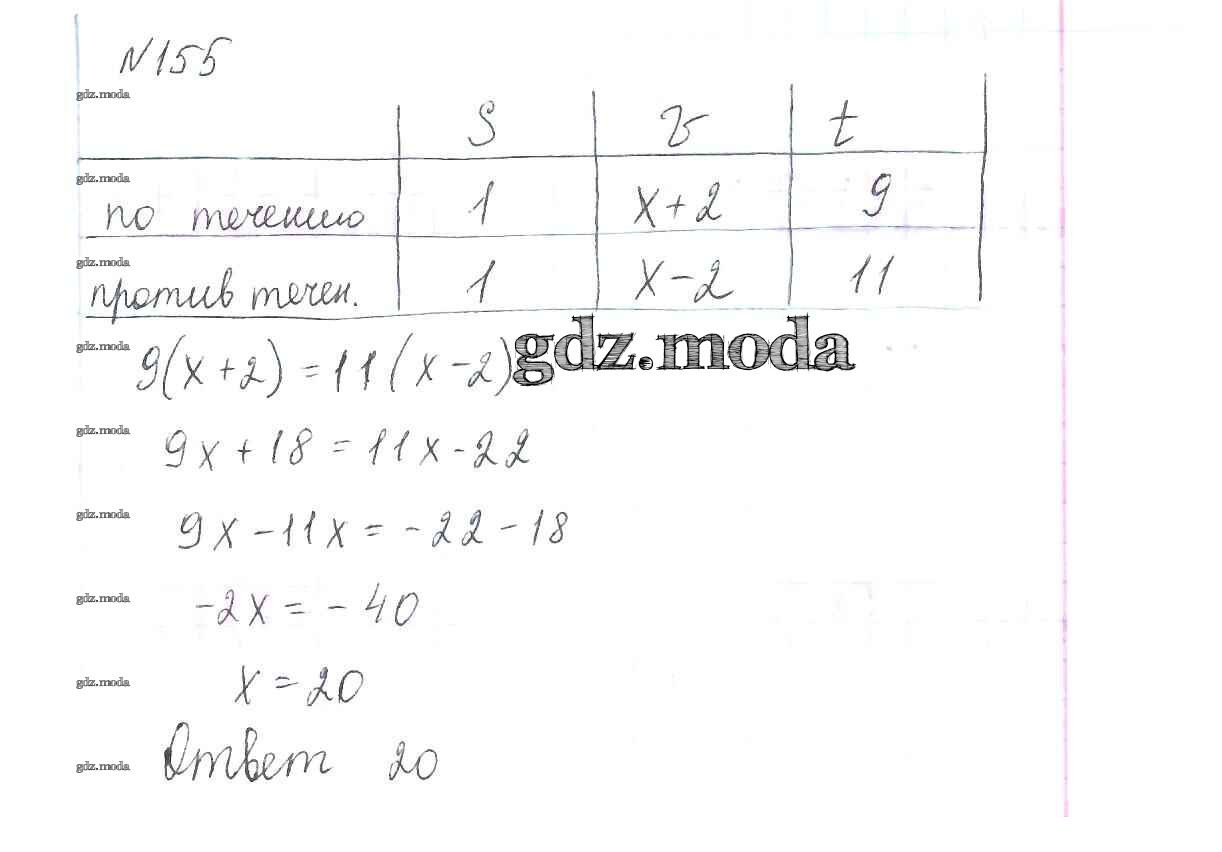 N155
gdz.moda
S v t
gdz.moda
по течению 1 x+2 9
gdz.moda
против течен. 1 x-2 11
gdz.moda
9(x+2)=11(x-2) gdz.moda
gdz.moda
9x+18=11x-22
gdz.moda
9x-11x=-22-18
gdz.moda
-2x=-40
gdz.moda
x=20
gdz.moda
Ответ 20